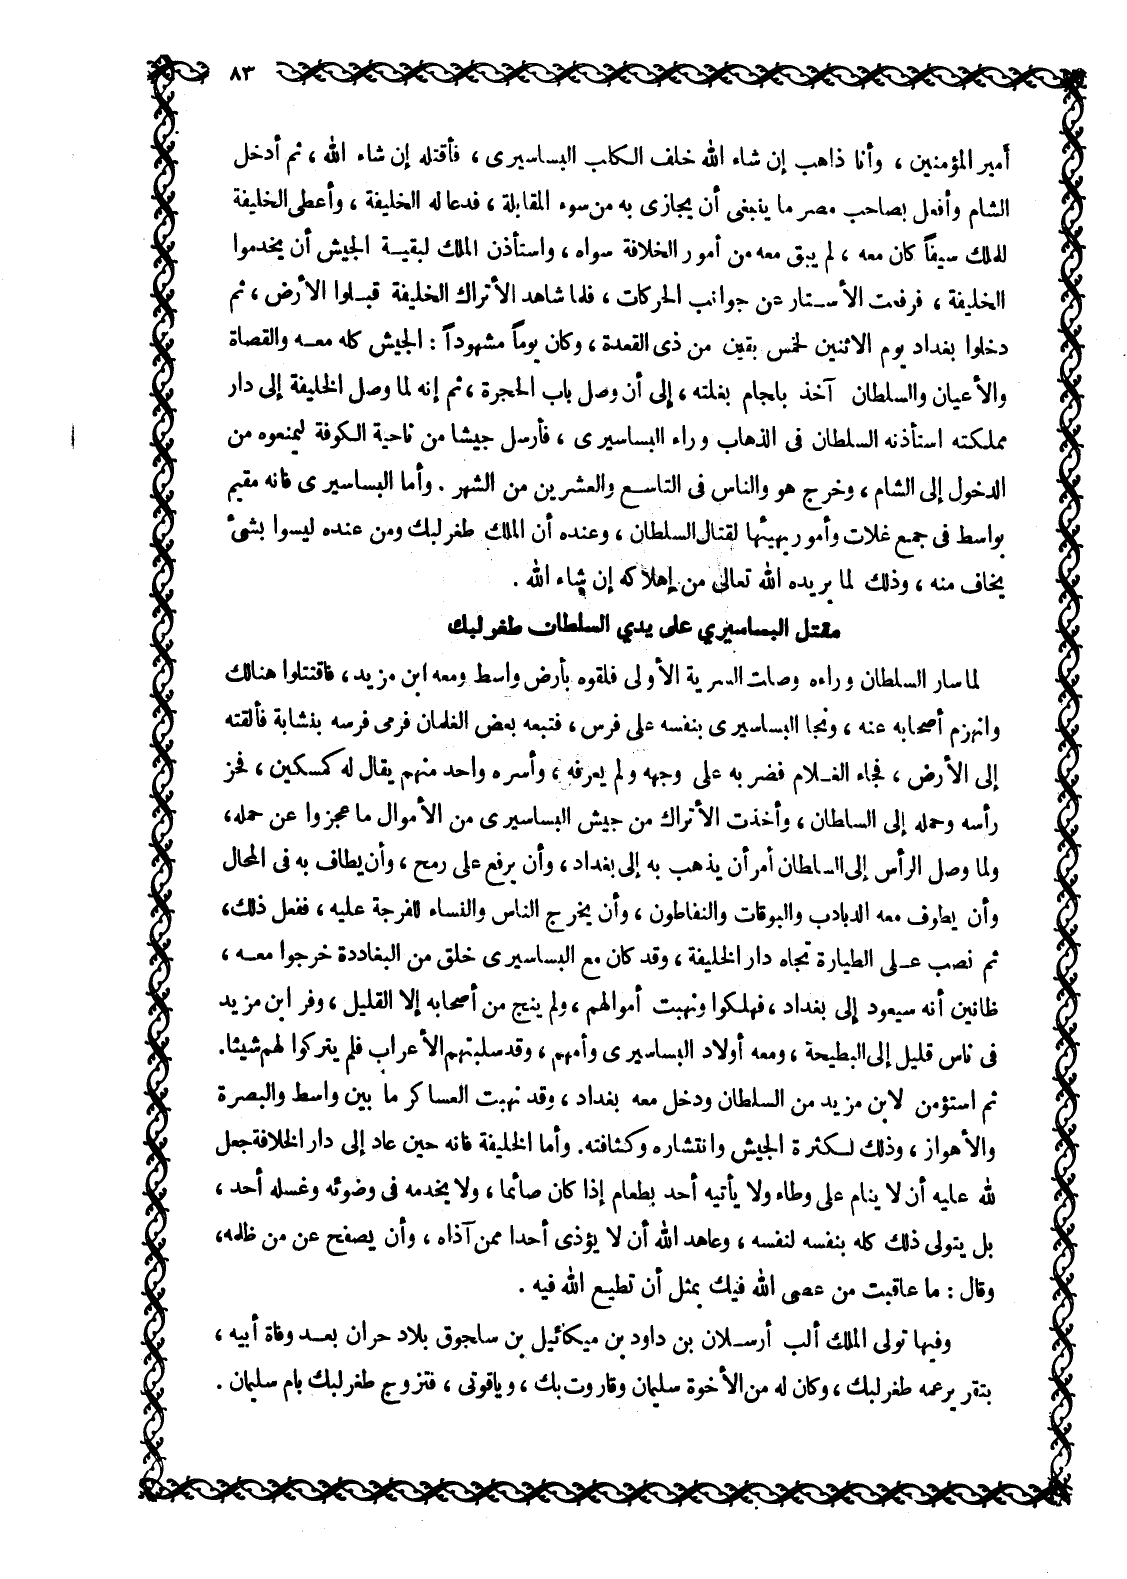 ٨٣
أمير المؤمنين ، وأنا ذاهب إن شاء الله خلف الكلب البساسيرى ، فأقتله إن شاء الله ، ثم أدخل
الشام وأفعل بصاحب مصر ما ينبغى أن يجازى به من سوء المقابلة ، فدعا له الخليفة ، وأعطى الخليفة
للملك سيفاً كان معه ، لم يبق معه من أمور الخلافة سواه ، واستأذن الملك لبقية الجيش أن يخدموا
الخليفة ، فرفعت الأستار عن جوانب الحركات ، فلما شاهد الأتراك الخليفة قبلوا الأرض ، ثم
دخلوا بغداد يوم الاثنين لخمس بقين من ذى القعدة ، وكان يوماً مشهوداً : الجيش كله معه والقضاة
والأعيان والسلطان آخذ بلجام بغلته ، إلى أن وصل باب الحجرة ، ثم إنه لما وصل الخليفة إلى دار
مملكته استأذنه السلطان فى الذهاب وراء البساسيرى ، فأرسل جيشا من ناحية الكوفة ليمنعوه من
الدخول إلى الشام ، وخرج هو والناس فى التاسع والعشرين من الشهر . وأما البساسيرى فانه مقيم
بواسط فى جمع غلات وأمور يهيئها لقتال السلطان ، وعنده أن الملك طغرلبك ومن عنده ليسوا بشئ
يخاف منه ، وذلك لما يريده الله تعالى من إهلاكه إن شاء الله .
مقتل البساسيري على يدي السلطان طغرلبك
لما سار السلطان وراءه وصلت السرية الأولى فلقوه بأرض واسط ومعه ابن مزيد ، فاقتتلوا هنالك
وانهزم أصحابه عنه ، ونجا البساسيرى بنفسه على فرس ، فتبعه بعض الغلمان فرمى فرسه بنشابة فألقته
إلى الأرض ، فجاء الغلام فضربه على وجهه ولم يعرفه ، وأسره واحد منهم يقال له كمسكين ، فحز
رأسه وحمله إلى السلطان ، وأخذت الأتراك من جيش البساسيرى من الأموال ما عجزوا عن حمله ،
ولما وصل الرأس إلى السلطان أمر أن يذهب به إلى بغداد ، وأن يرفع على رمح ، وأن يطاف به فى المحال
وأن يطوف معه الدبادب والبوقات والنفاطون ، وأن يخرج الناس والنساء للفرجة عليه ، ففعل ذلك ،
ثم نصب على الطيارة تجاه دار الخليفة ، وقد كان مع البساسيرى خلق من البغاددة خرجوا معه ،
ظانين أنه سيعود إلى بغداد ، فهلكوا ونهبت أموالهم ، ولم ينج من أصحابه إلا القليل ، وفر ابن مزيد
فى ناس قليل إلى البطيحة ، ومعه أولاد البساسيرى وأمهم ، وقد سلبتهم الأعراب فلم يتركوا لهم شيئا .
ثم استؤمن لابن مزيد من السلطان ودخل معه بغداد ، وقد نهبت العساكر ما بين واسط والبصرة
والأهواز ، وذلك لكثرة الجيش وانتشاره وكثافته . وأما الخليفة فانه حين عاد إلى دار الخلافة جعل
لله عليه أن لا ينام على وطاء ولا يأتيه أحد بطعام إذا كان صائما ، ولا يخدمه فى وضوئه وغسله أحد ،
بل يتولى ذلك كله بنفسه لنفسه ، وعاهد الله أن لا يؤذى أحدا ممن آذاه ، وأن يصفح عن من ظلمه ،
وقال : ما عاقبت من عصى الله فيك بمثل أن تطيع الله فيه .
وفيها تولى الملك ألب أرسلان بن داود بن ميكائيل بن سلجوق بلاد حران بعد وفاة أبيه ،
بتقرير عمه طغرلبك ، وكان له من الأخوة سليمان وقاروت بك ، وياقوتى ، فتزوج طغرلبك بام سليمان .